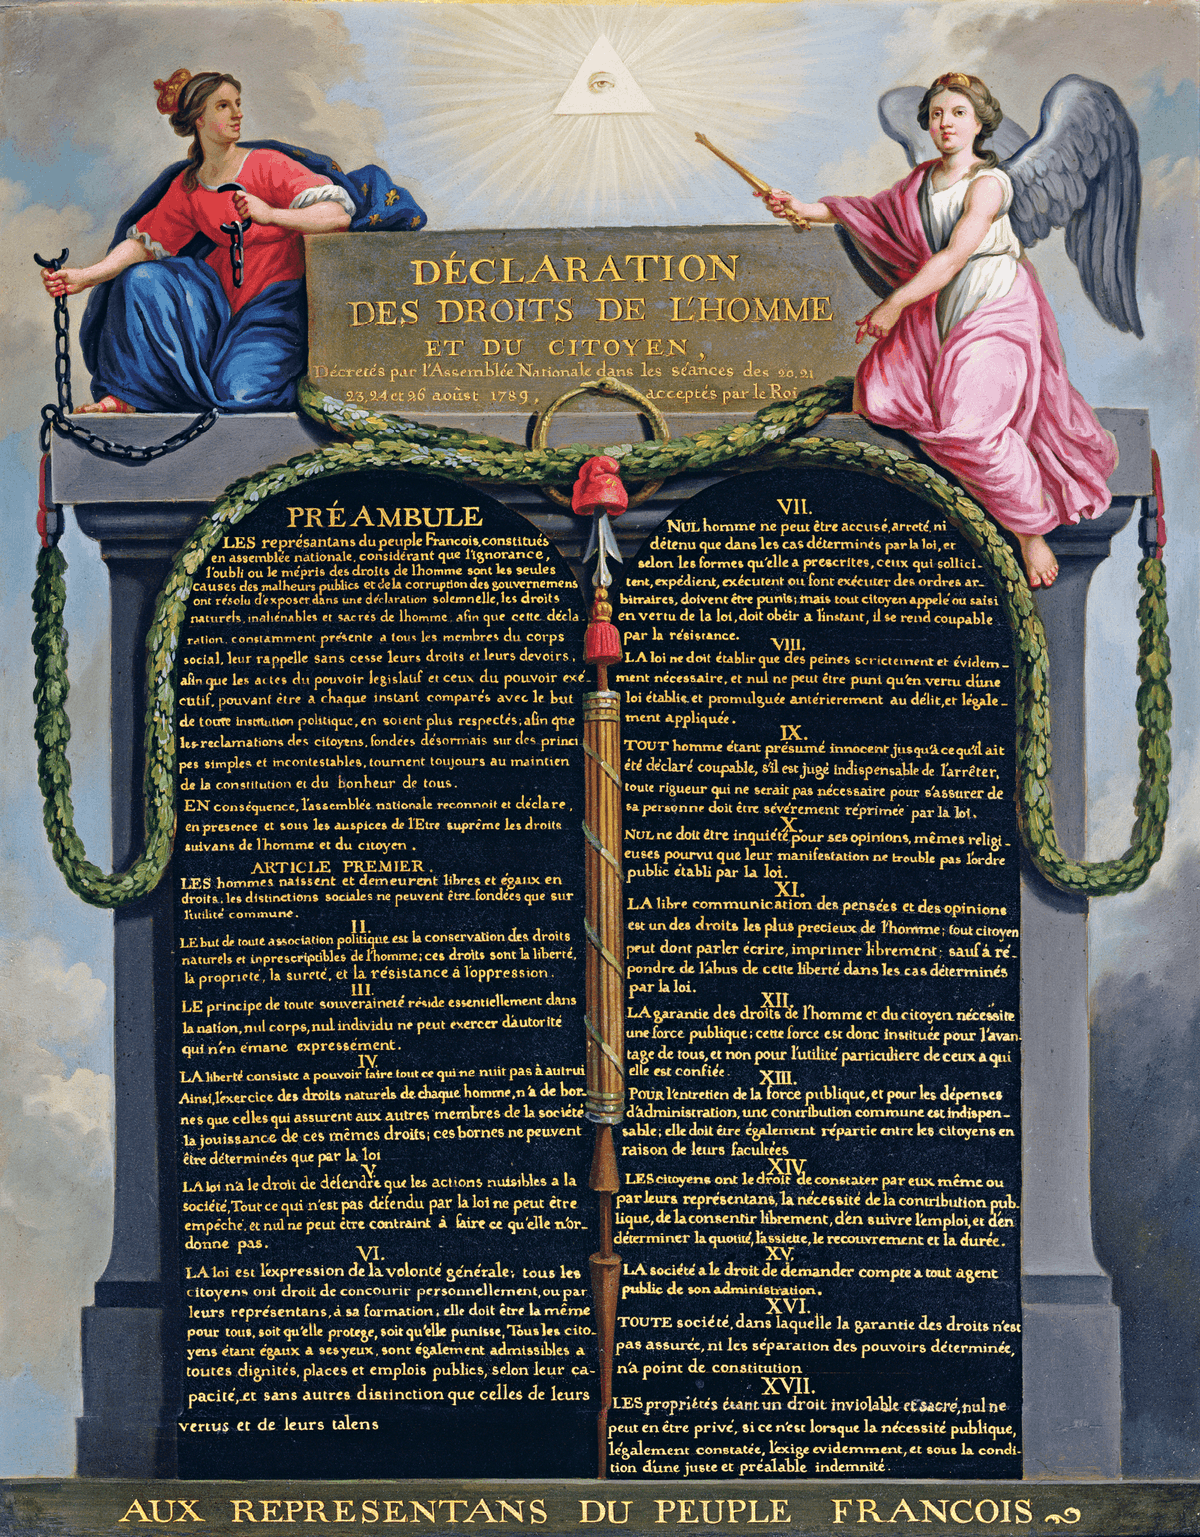 DÉCLARATION
DES DROITS DE L'HOMME
ET DU CITOYEN,
Décretés par l'Assemblée Nationale dans les séances des 20, 21
23, 24 et 26 août 1789, acceptés par le Roi
PRÉAMBULE
LES représantans du peuple Francois, constitués
en assemblée nationale, considérant que l'ignorance,
l'oubli ou le mépris des droits de l'homme sont les seules
causes des malheurs publics et de la corruption des gouvernemens
ont résolu d'exposer dans une déclaration solemnelle, les droits
naturels, inaliénables et sacrés de l'homme, afin que cette décla-
ration, constamment présente a tous les membres du corps
social, leur rappelle sans cesse leurs droits et leurs devoirs,
afin que les actes du pouvoir legislatif et ceux du pouvoir exé-
cutif, pouvant être à chaque instant comparés avec le but
de toute institution politique, en soient plus respectés; afin que
les reclamations des citoyens, fondées désormais sur des princi
pes simples et incontestables, tournent toujours au maintien
de la constitution et du bonheur de tous.
EN conséquence, l'assemblée nationale reconnoit et déclare,
en presence et sous les auspices de l'Etre suprême les droits
suivans de l'homme et du citoyen.
ARTICLE PREMIER.
LES hommes naissent et demeurent libres et égaux en
droits, les distinctions sociales ne peuvent être fondées que sur
l'utilité commune.
II.
LE but de toute association politique est la conservation des droits
naturels et inprescriptibles de l'homme; ces droits sont la liberté,
la propriete, la sureté, et la résistance à l'oppression.
III.
LE principe de toute souveraineté réside essentiellement dans
la nation, nul corps, nul individu ne peut exercer d'autorité
qui n'en émane expressément.
IV.
LA liberté consiste a pouvoir faire tout ce qui ne nuit pas à autrui
Ainsi, l'exercice des droits naturels de chaque homme, n'a de bor-
nes que celles qui assurent aux autres membres de la société
la jouissance de ces mêmes droits; ces bornes ne peuvent
être déterminées que par la loi
V.
LA loi n'a le droit de défendre que les actions nuisibles a la
société, Tout ce qui n'est pas défendu par la loi ne peut être
empêché, et nul ne peut être contraint à faire ce qu'elle n'or-
donne pas.
VI.
LA loi est l'expression de la volonté générale; tous les
citoyens ont droit de concourir personnellement, ou par
leurs représentans, à sa formation; elle doit être la même
pour tous, soit qu'elle protege, soit qu'elle punisse, Tous les cito-
yens étant égaux a ses yeux, sont également admissibles a
toutes dignités, places et emplois publics, selon leur ca-
pacité, et sans autres distinction que celles de leurs
vertus et de leurs talens
VII.
NUL homme ne peut être accusé, arreté, ni
détenu que dans les cas déterminés par la loi, et
selon les formes qu'elle a prescrites, ceux qui sollici-
tent, expédient, exécutent ou font exécuter des ordres ar-
bitraires, doivent être punis; mais tout citoyen appelé ou saisi
en vertu de la loi, doit obéir a l'instant, il se rend coupable
par la résistance.
VIII.
LA loi ne doit établir que des peines strictement et évidem-
ment nécessaire, et nul ne peut être puni qu'en vertu d'une
loi établie et promulguée antérierement au délit, et légale-
ment appliquée.
IX.
TOUT homme étant présumé innocent jusqu'à ce qu'il ait
été déclaré coupable, s'il est jugé indispensable de l'arrêter,
toute rigueur qui ne serait pas nécessaire pour s'assurer de
sa personne doit être sévèrement réprimée par la loi.
X.
NUL ne doit être inquiété pour ses opinions, mêmes religi-
euses pourvu que leur manifestation ne trouble pas l'ordre
public établi par la loi.
XI.
LA libre communication des pensées et des opinions
est un des droits les plus precieux de l'homme; tout citoyen
peut dont parler écrire, imprimer librement; sauf à ré-
pondre de l'abus de cette liberté dans les cas déterminés
par la loi.
XII.
LA garantie des droits de l'homme et du citoyen nécessite
une force publique; cette force est donc instituée pour l'avan-
tage de tous, et non pour l'utilité particuliere de ceux a qui
elle est confiée.
XIII.
POUR l'entretien de la force publique, et pour les dépenses
d'administration, une contribution commune est indispen-
sable; elle doit être également répartie entre les citoyens en
raison de leurs facultées
XIV.
LES citoyens ont le droit de constater par eux même ou
par leurs représentans, la nécessité de la contribution pub-
lique, de la consentir librement, d'en suivre l'emploi, et d'en
déterminer la quotité, l'assiette, le recouvrement et la durée.
XV.
LA société a le droit de demander compte a tout agent
public de son administration.
XVI.
TOUTE société, dans laquelle la garantie des droits n'est
pas assurée, ni les séparation des pouvoirs déterminée,
n'a point de constitution
XVII.
LES propriétés étant un droit inviolable et sacré, nul ne
peut en être privé, si ce n'est lorsque la nécessité publique,
légalement constatée, l'exige evidemment, et sous la condi-
tion d'une juste et préalable indemnité.
AUX REPRESENTANS DU PEUPLE FRANCOIS